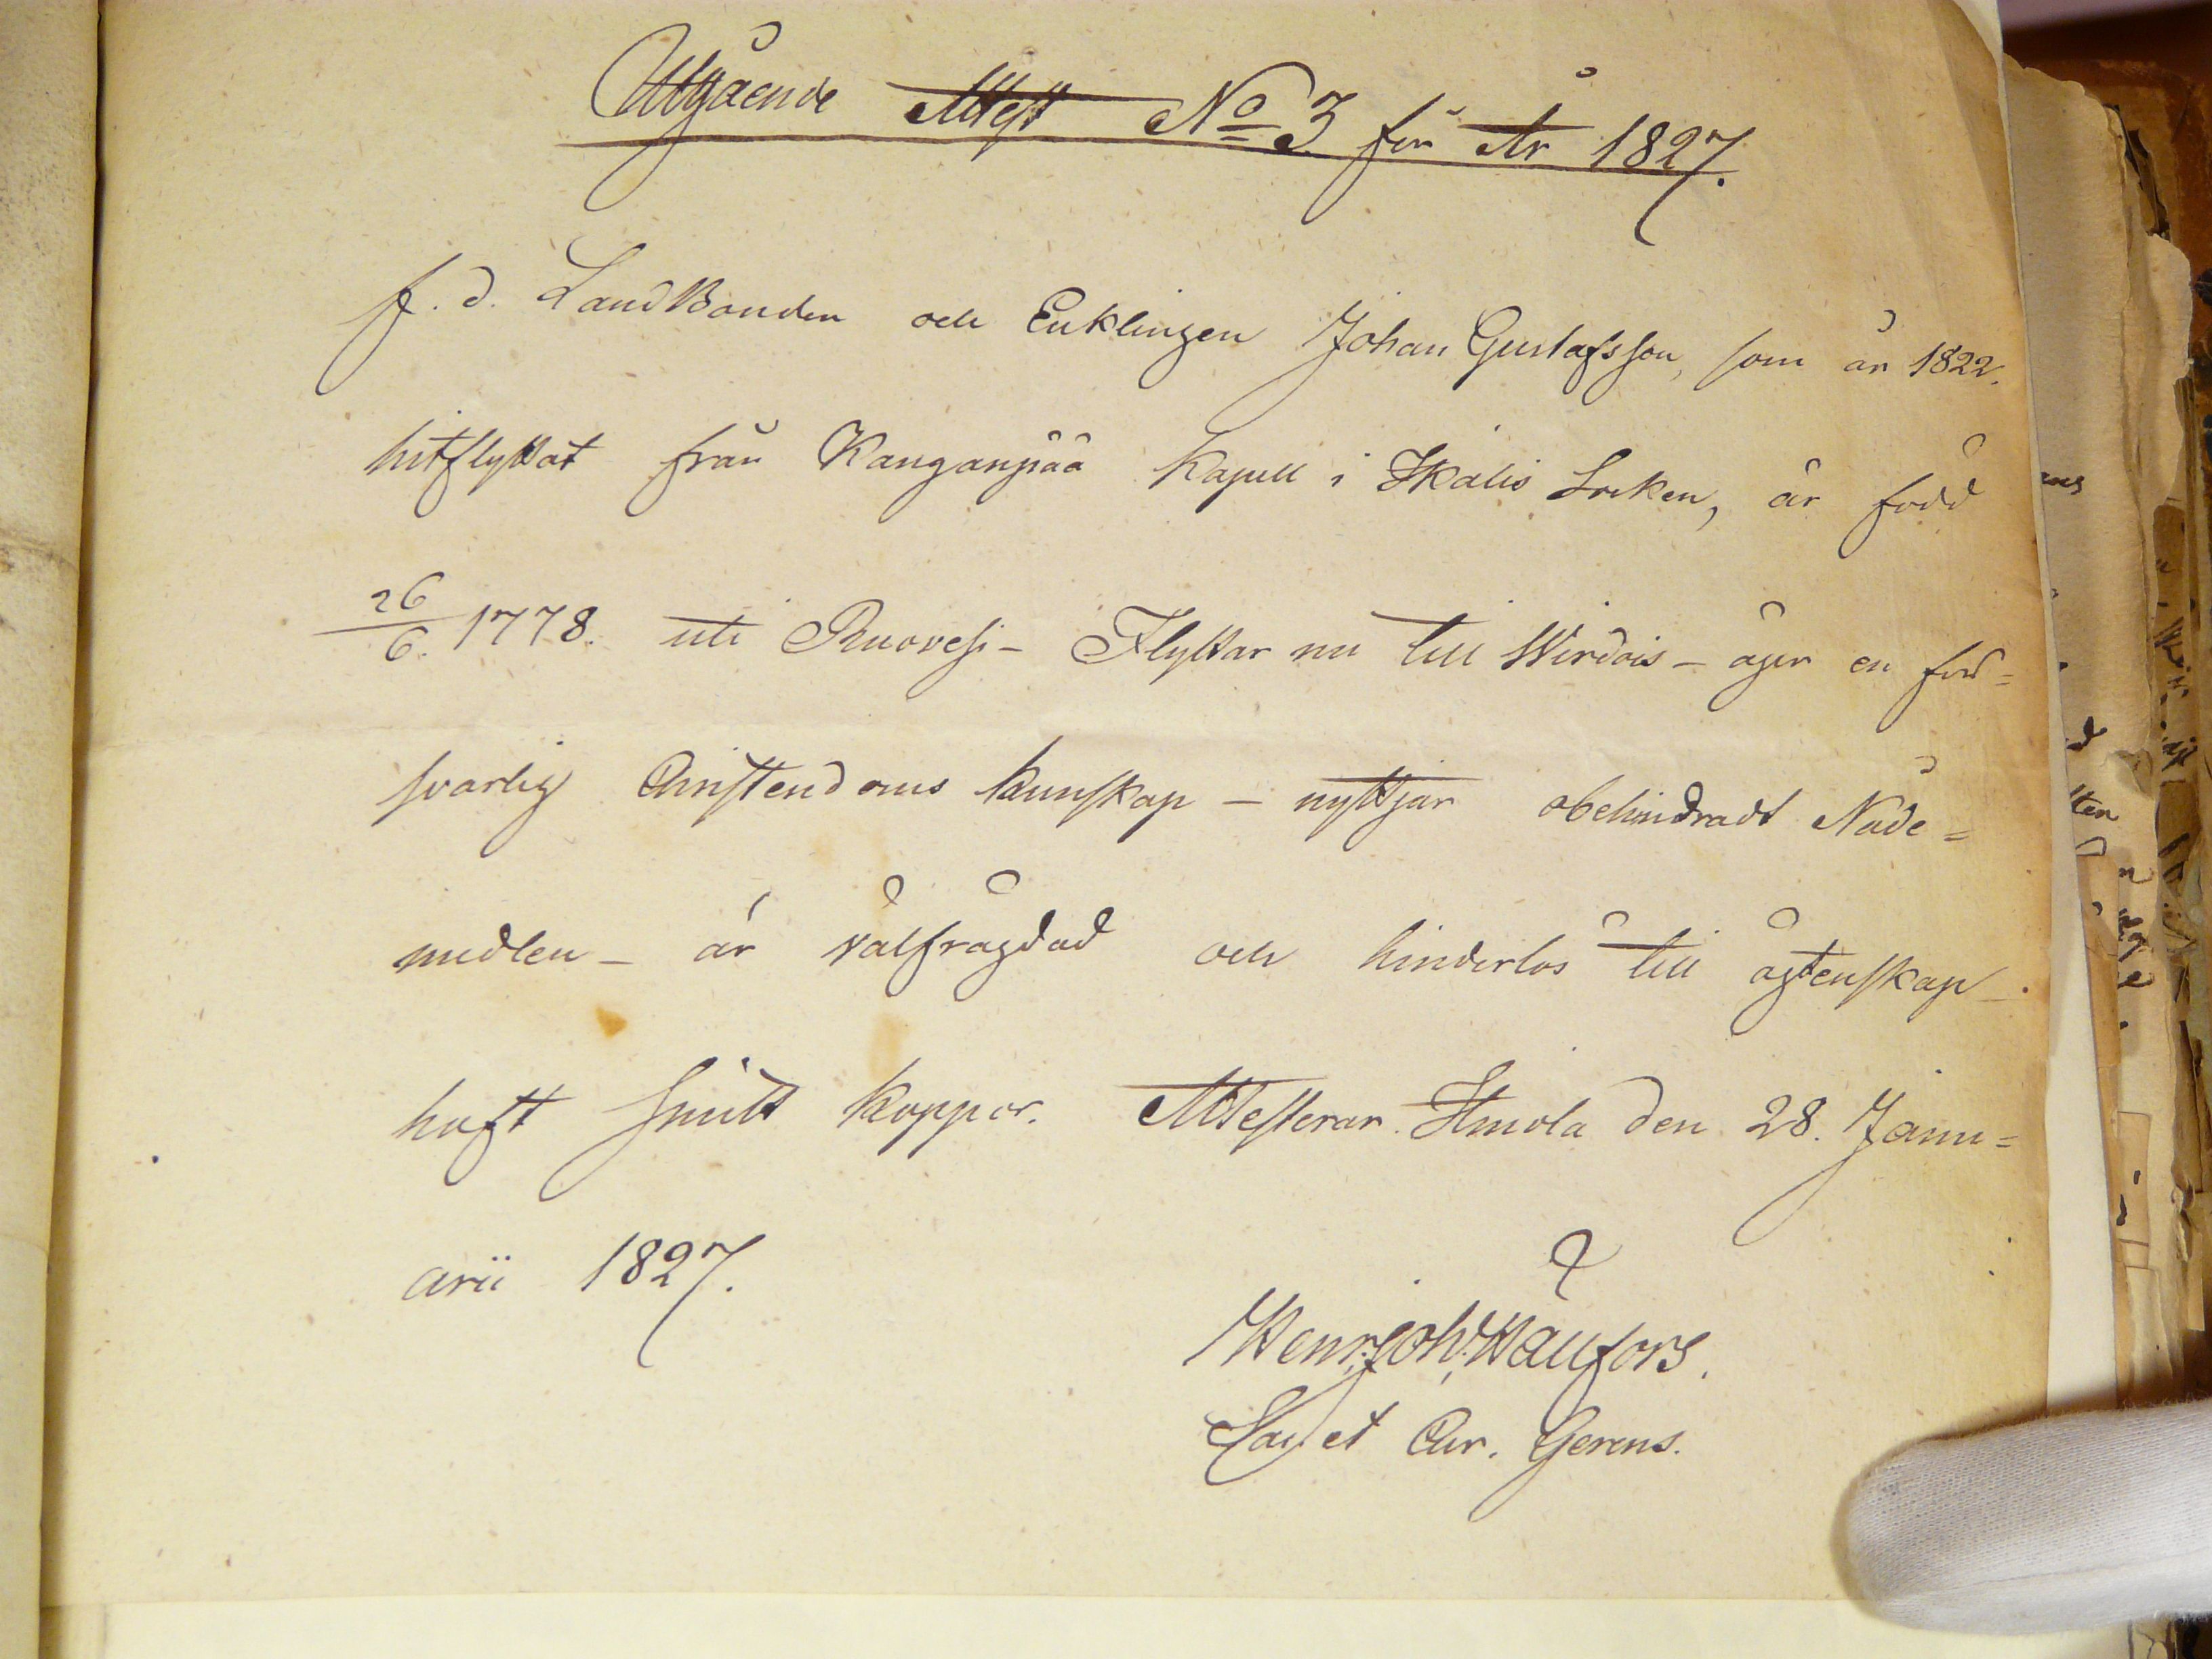 Utgående Attest No 3 för År 1827.
f. d. LandBonden och Enklingen Johan Gustafsson, som år 1822.
hitflyttat från Kanganpää Kapell i Ikalis Socken, är född
26/6. 1778. uti Ruovesi - Flyttar nu till Wirdois - äger en för=
svarlig Christendoms kunskap - nyttjar obehindradt Nåde=
medlen - är välfrägdad och hinderlös till ägtenskap -
haft Smitt koppor. Attesterar Itmola den 28. Janu=
arii 1827.
Henr. Joh. Wallfors.
Sac. et Cur. Gerens.